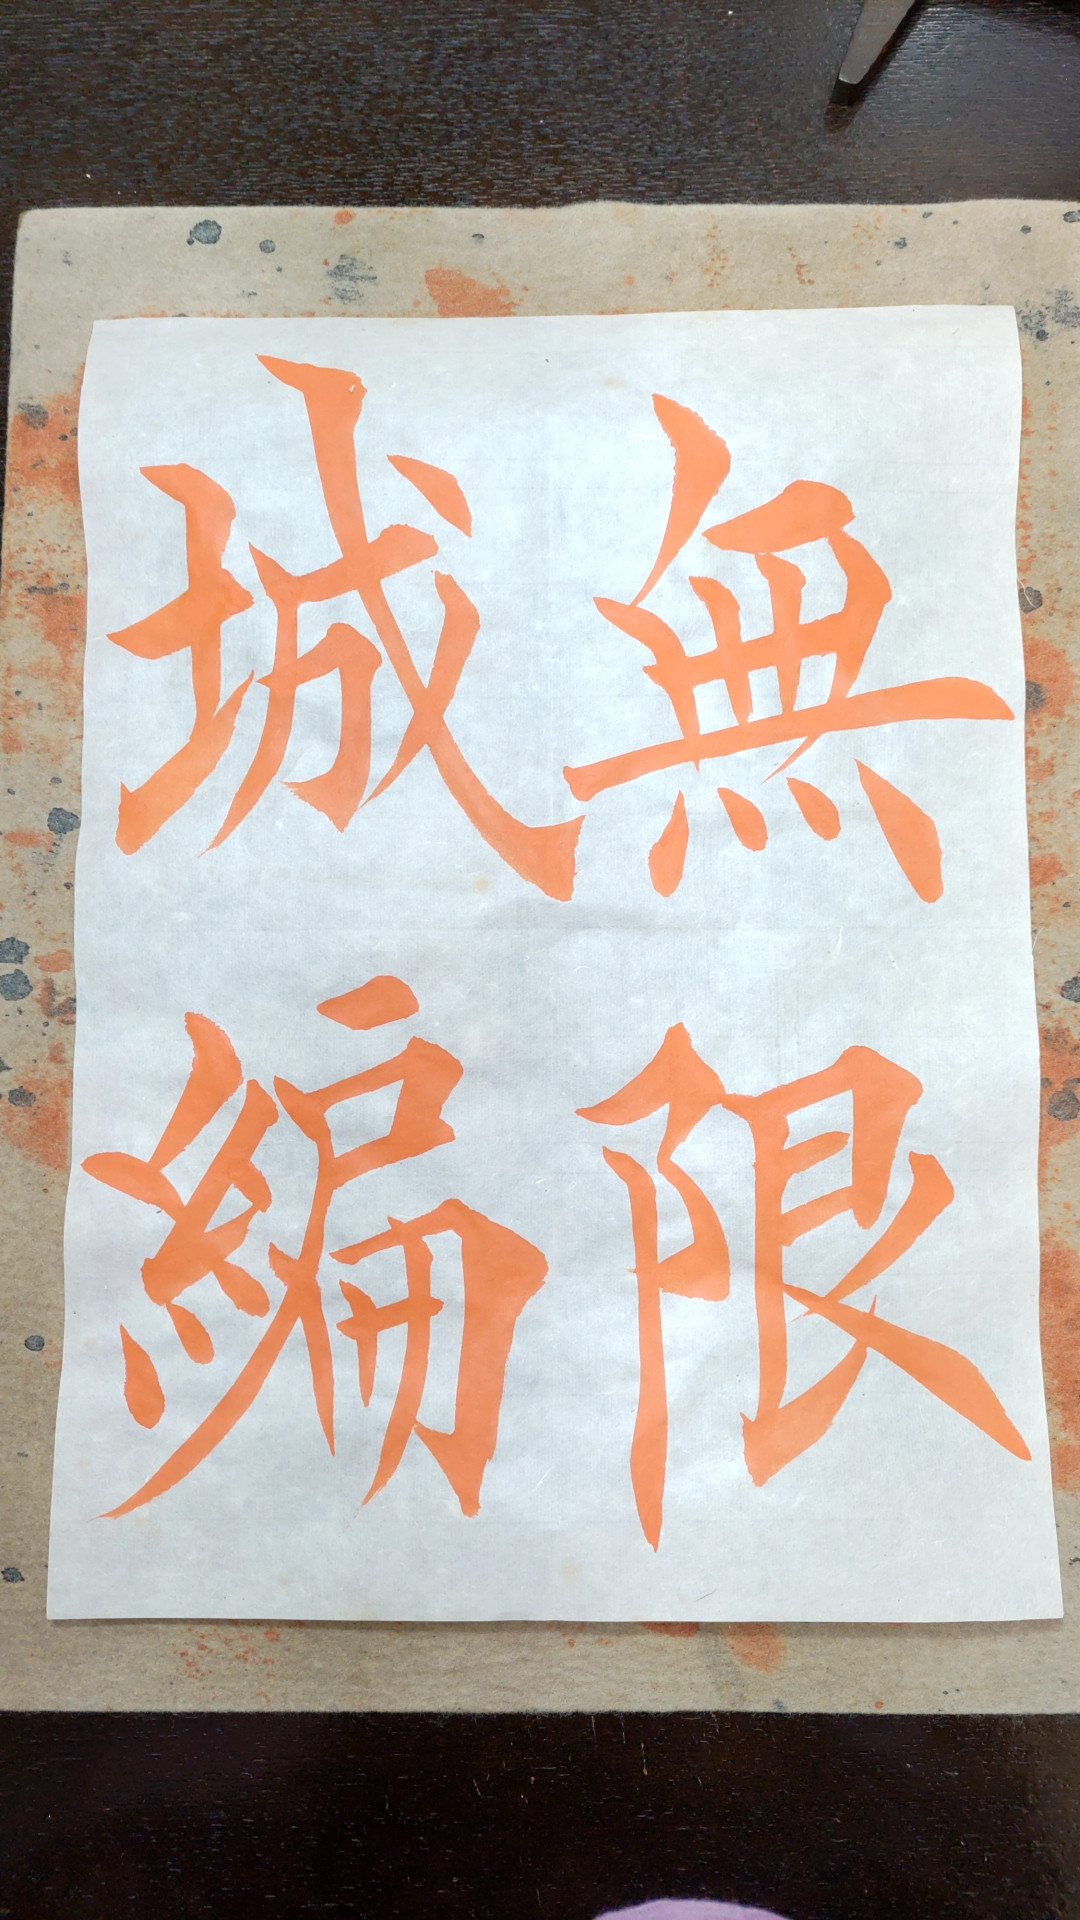 無限
城編